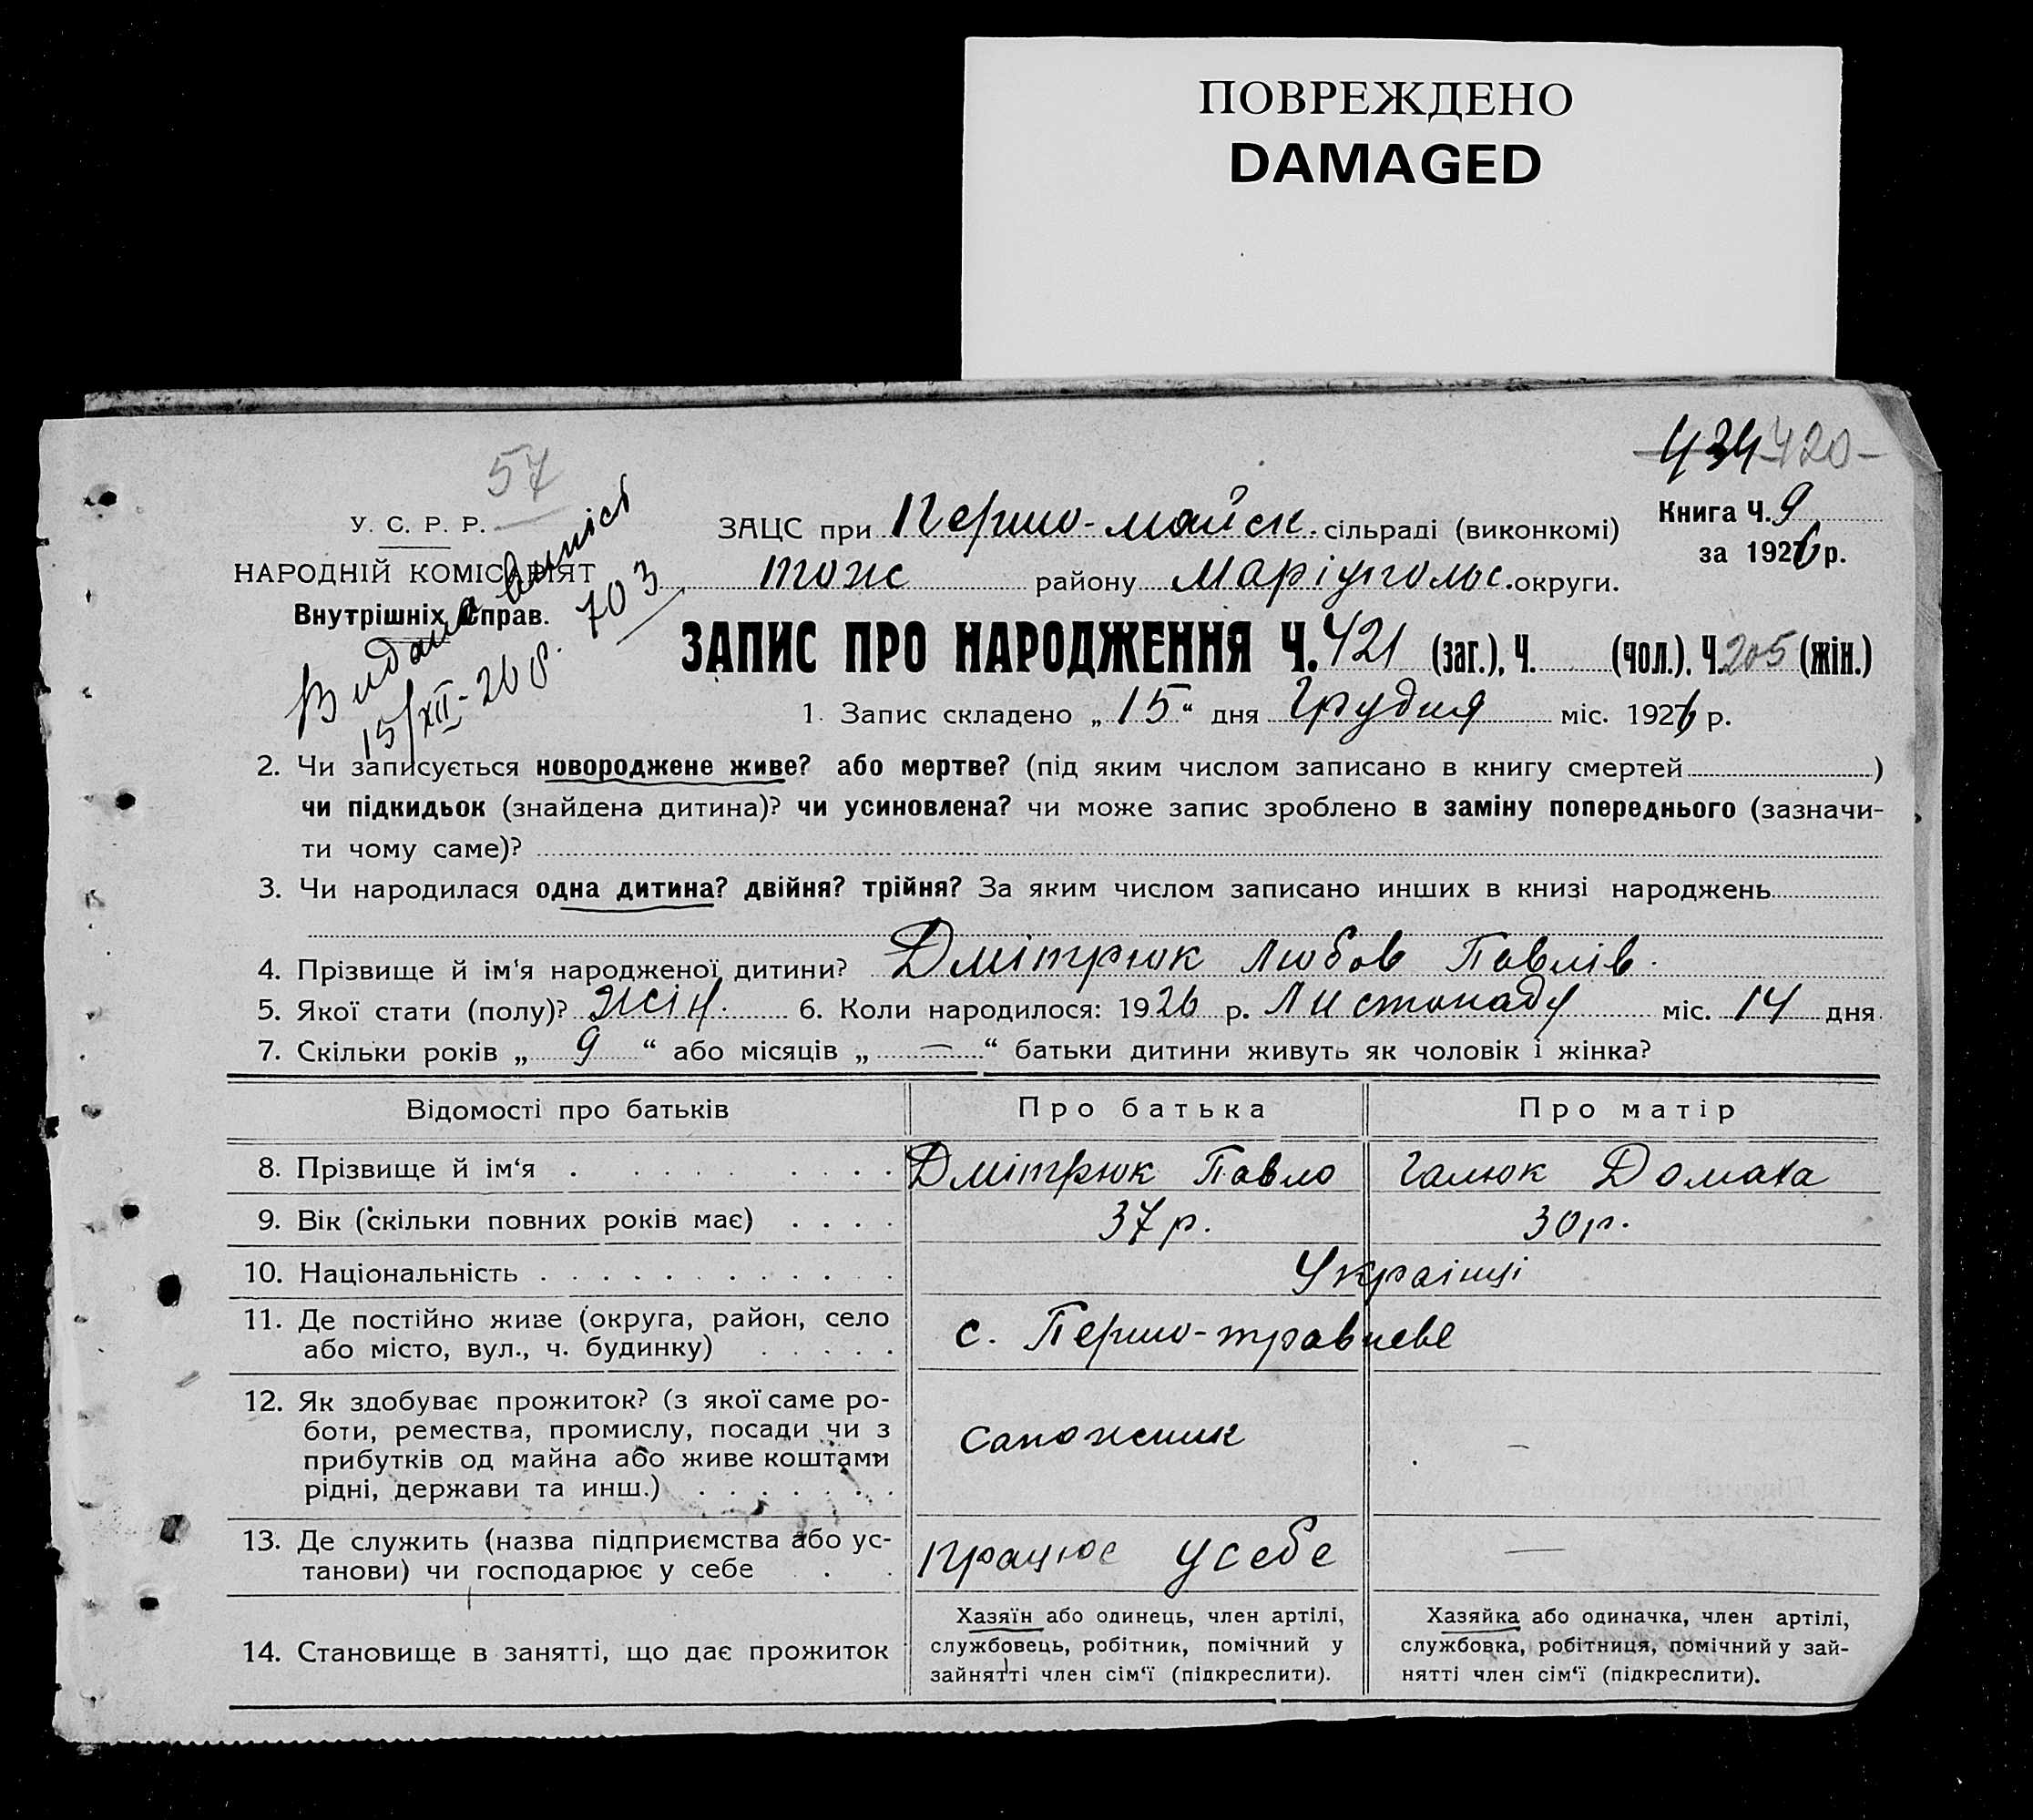 ПОВРЕЖДЕНО
DAMAGED
434 420-
57
У. С. Р. Р.
НАРОДНІЙ КОМІСАРІЯТ
Внутрішніх Справ.
Видана випись
15/XII-26 р. 703
ЗАЦС при Першо-майск. сільраді (виконкомі)
Книга Ч. 9
за 1926 р.
тож району Маріупольс. округи.
ЗАПИС ПРО НАРОДЖЕННЯ Ч. 421 (заг.), Ч. (чол.), Ч. 205 (жін.)
1. Запис складено „ 15 “ дня Грудня міс. 1926 р.
2. Чи записується новороджене живе? або мертве? (під яким числом записано в книгу смертей )
чи підкидьок (знайдена дитина)? чи усиновлена? чи може запис зроблено в заміну попереднього (зазначи-
ти чому саме)?
3. Чи народилася одна дитина? двійня? трійня? За яким числом записано инших в книзі народжень
4. Прізвище й ім‘я народженої дитини? Дмітрюк Любов Павлів.
5. Якої стати (полу)? жін. 6. Коли народилося: 1926 р. Листопаду міс. 14 дня
7. Скільки років „ 9 “ або місяців „ — “ батьки дитини живуть як чоловік і жінка?
Відомості про батьків Про батька Про матір
8. Прізвище й ім‘я Дмітрюк Павло Галюк Домаха
9. Вік (скільки повних років має) 37 р. 30 р.
10. Національність Українці
11. Де постійно живе (округа, район, село
або місто, вул., ч. будинку) с. Першо-травневе
12. Як здобуває прожиток? (з якої саме ро-
боти, ремества, промислу, посади чи з
прибутків од майна або живе коштами
рідні, держави та инш.) сапожник —
13. Де служить (назва підприємства або ус-
танови) чи господарює у себе працює у себе —
14. Становище в занятті, що дає прожиток
Хазяїн або одинець, член артілі,
службовець, робітник, помічний у
зайнятті член сім‘ї (підкреслити).
Хазяйка або одиначка, член артілі,
службовка, робітниця, помічний у зай-
нятті член сім‘ї (підкреслити).